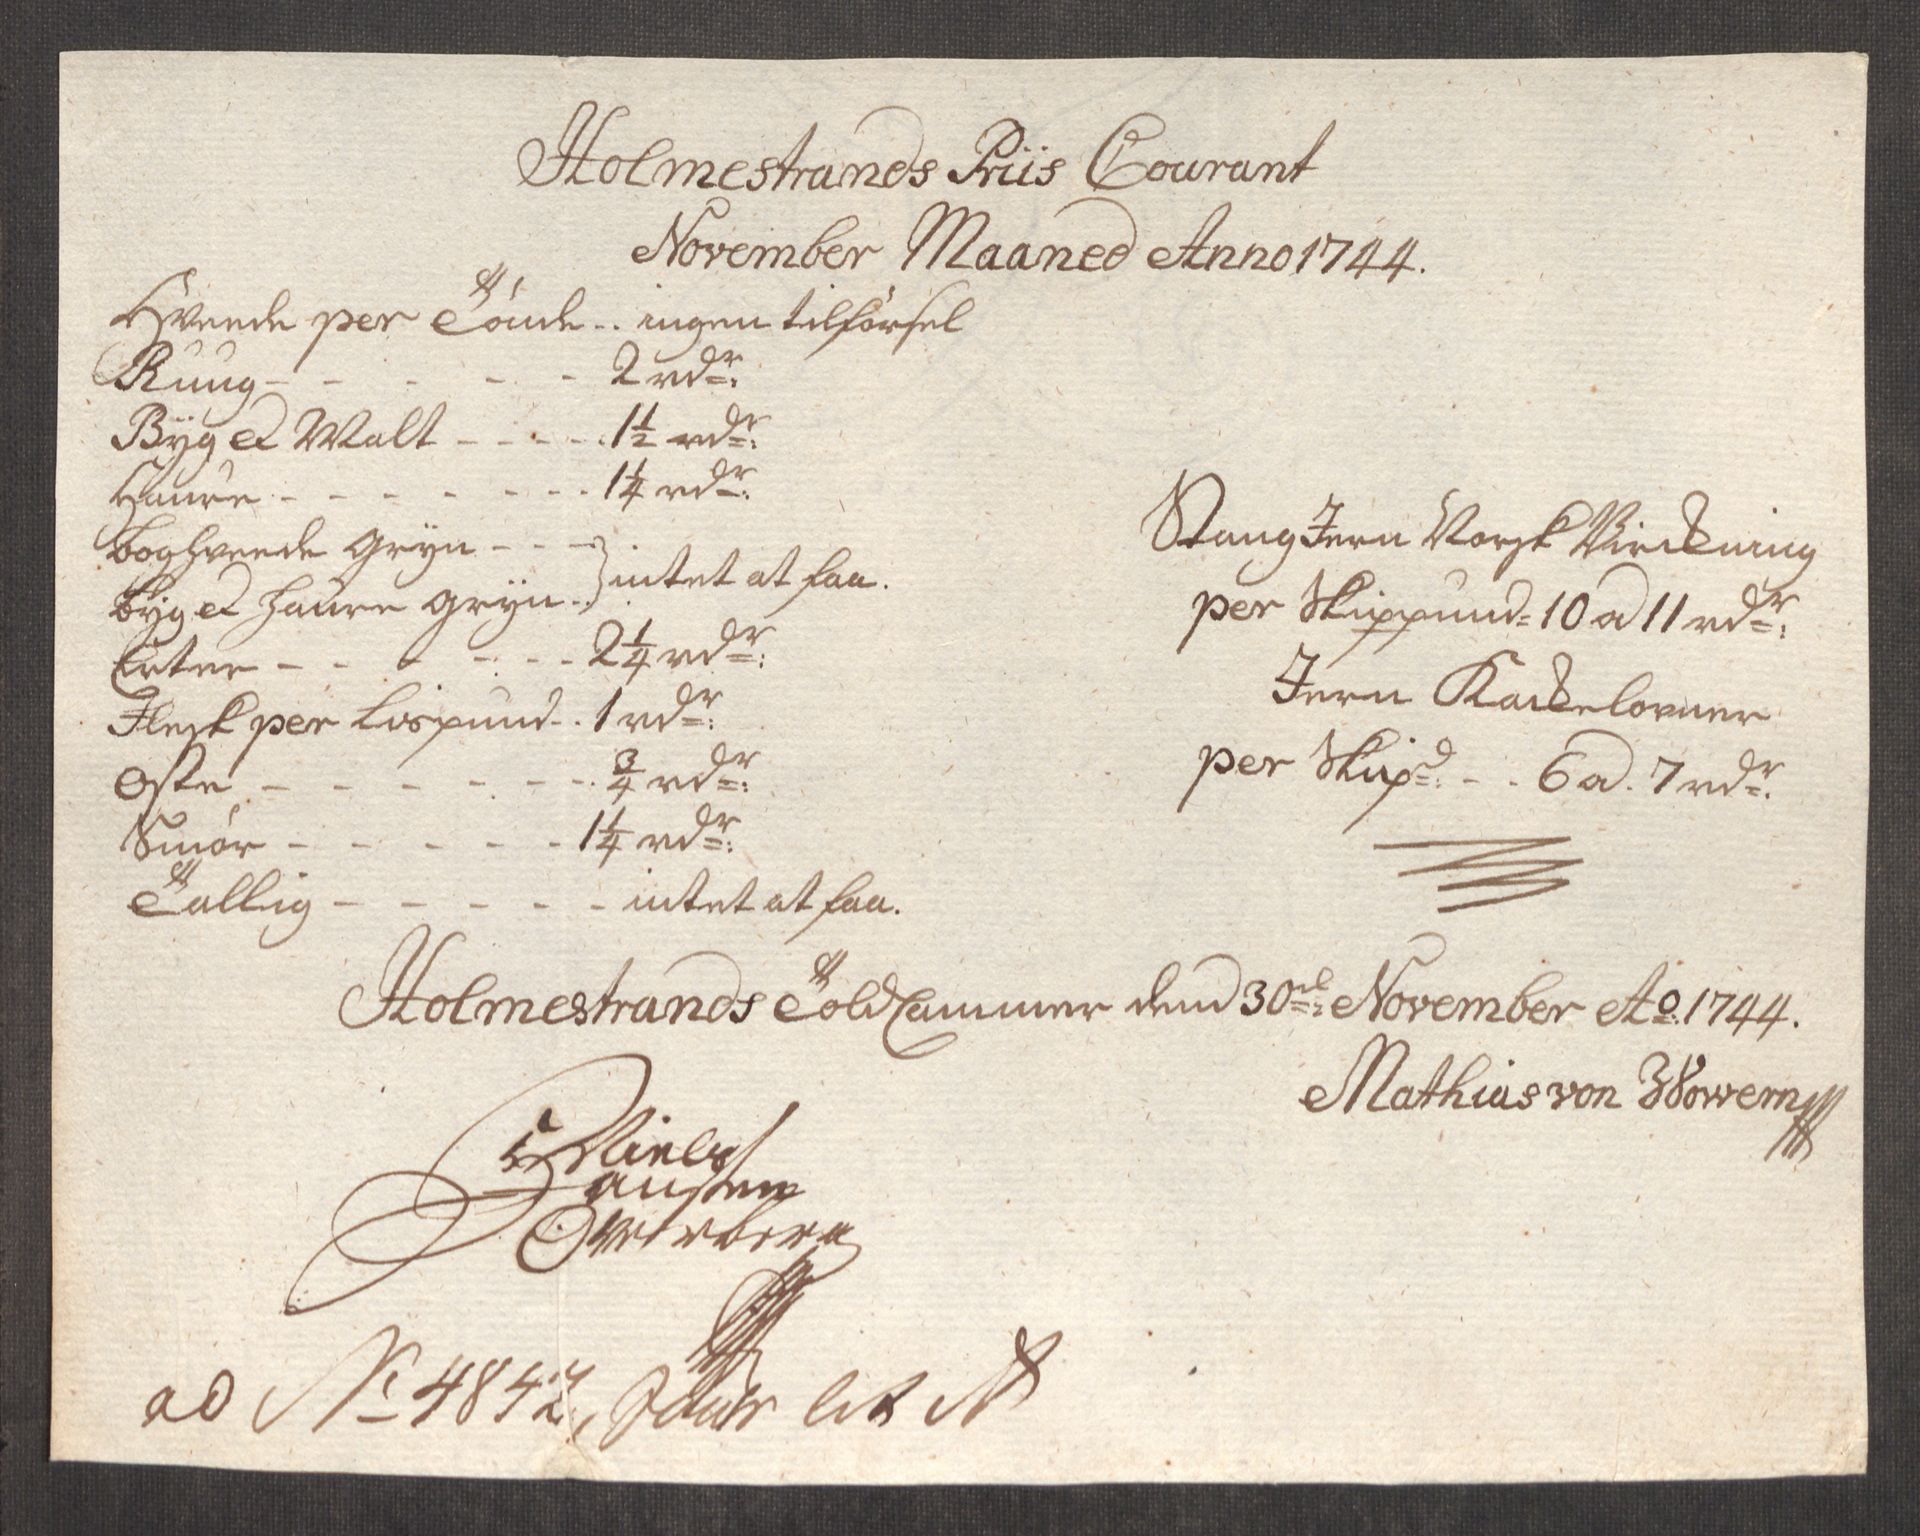 Holmestrands Priis Courant
November Maaned Anno 1744.
Hveede per Tönde .. ingen tilförsel
Ruug - - - - - 2 rdr:
Byg et Malt - - - - 1½ rdr:
Haure - - - - - - - 1¼ rdr:
boghveede gryn - - -
byg et haure gryn . } intet at faa.
Erter - - - - - - 2¼ rdr:
Flesk per Lispund . . 1 rdr:
Oste - - - - - - - ¾ rdr:
Smör - - - - - 1¼ rdr:
Tallig - - - - - intet at faa.
Stang Jern Norsk Virckning
per Skippund = 10 a 11 rdr:
Jern Kackelovner
per Skipd: - . 6 a 7 rdr.
Holmestrands Told Cammer dend 30te November Ao. 1744.
Mathias von Wowern
Niels
Hansen
Overberg
ad No 4842, lit A